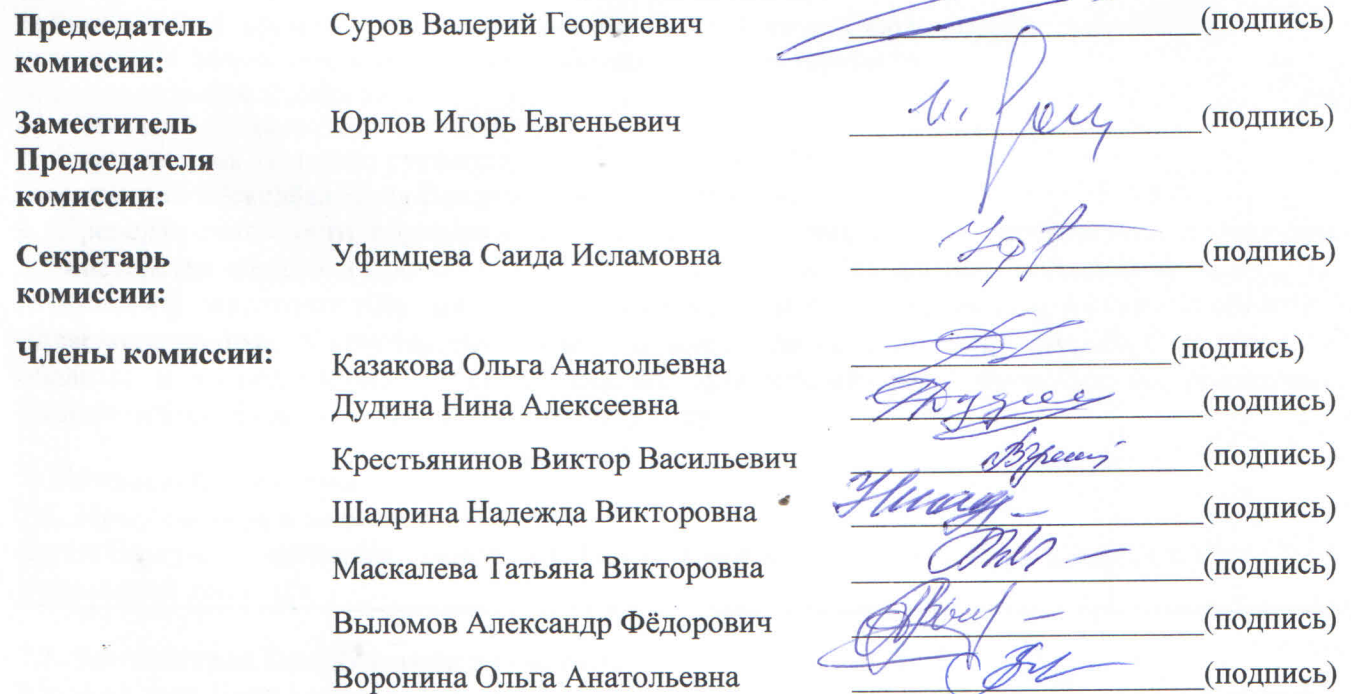 Председатель Суров Валерий Георгиевич (подпись)
комиссии:
Заместитель Юрлов Игорь Евгеньевич (подпись)
Председателя
комиссии:
Секретарь Уфимцева Саида Исламовна (подпись)
комиссии:
Члены комиссии: Казакова Ольга Анатольевна (подпись)
Дудина Нина Алексеевна (подпись)
Крестьянинов Виктор Васильевич (подпись)
Шадрина Надежда Викторовна (подпись)
Маскалева Татьяна Викторовна (подпись)
Выломов Александр Фёдорович (подпись)
Воронина Ольга Анатольевна (подпись)